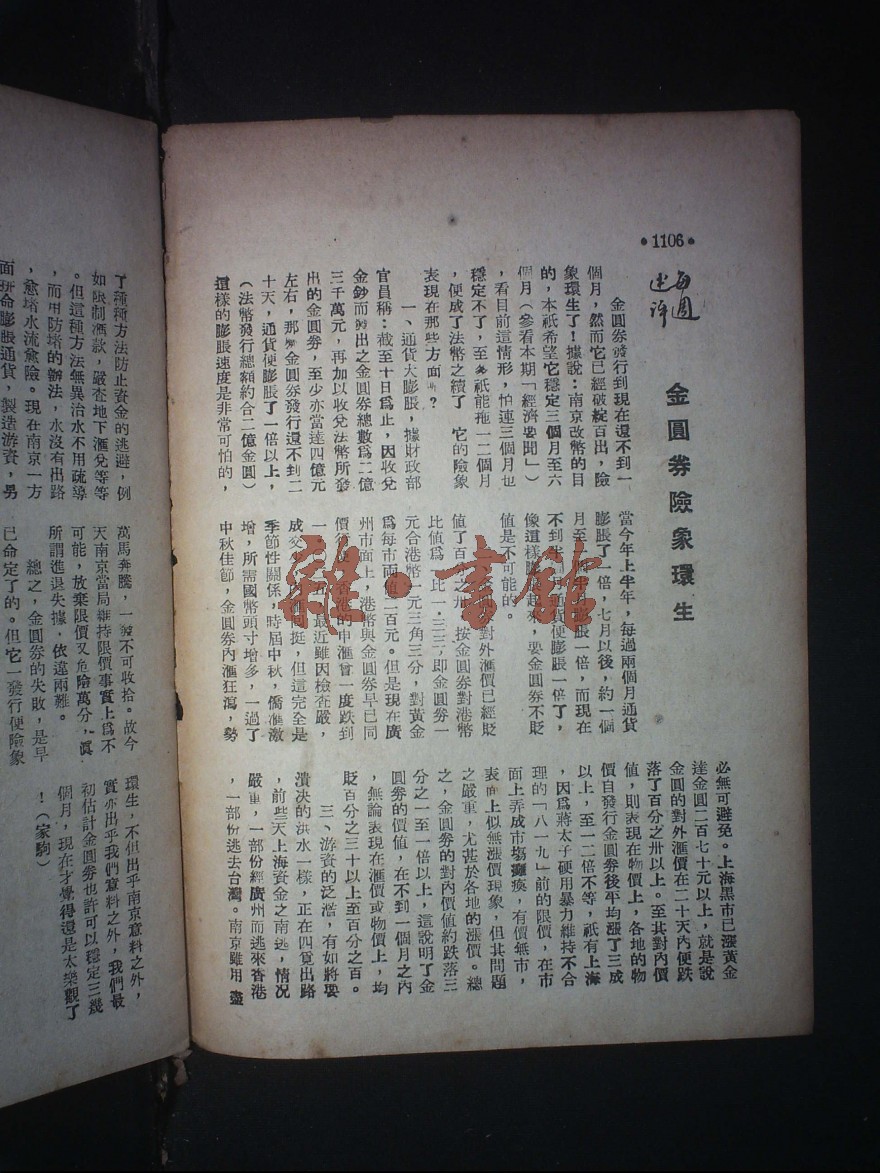 •1106•
每週述評
金圓券險象環生
金圓券發行到現在還不到一
個月，然而它已經破綻百出，險
象環生了！據說：南京改幣的目
的，本祇希望它穩定三個月至六
個月（參看本期「經濟要聞」）
，看目前這情形，怕連三個月也
穩定不了，至多祇能拖一二個月
，便成了法幣之續了　它的險象
表現在那些方面呢？
一、通貨大膨脹，據財政部
官員稱：截至十日爲止，因收兌
金鈔而發出之金圓券總數爲二億
三千萬元，再加以收兌法幣所發
出的金圓券，至少亦當達四億元
左右，那麽金圓券發行還不到二
十天，通貨便膨脹了一倍以上，
（法幣發行總額約合二億金圓）
這樣的膨脹速度是非常可怕的，
當今年上半年，每過兩個月通貨
膨脹了一倍，七月以後，約一個
月至一個半月膨脹一倍，而現在
不到半個月通貨便膨脹一倍了，
像這樣膨脹起來，要金圓券不貶
值是不可能的。
券對外滙價已經貶
值了百分之卅，按金圓券對港幣
比值爲一比一．三三，即金圓券一
元合港幣一元三角三分，對黃金
爲每市兩值二百元。但是現在廣
州市面上，港幣與金圓券早已同
價行使，香港的申滙嘗一度跌到
最近雖因檢查嚴，
成交少，內滙回挺，但這完全是
季節性關係，時屆中秋，僑滙激
增，所需國幣頭寸增多，一過了
中秋佳節，金圓券內滙狂瀉，勢
必無可避免。上海黑市已漲黃金
達金圓二百七十元以上，就是說
金圓的對外滙價在二十天內便跌
落了百分之卅以上。至其對內價
值，則表現在物價上，各地的物
價自發行金圓券後平均漲了三成
以上，至一二倍不等，祇有上海
，因爲蔣太子硬用暴力維持不合
理的「八一九」前的限價，在市
面上弄成市場癱瘓，有價無市，
表面上似無漲價現象，但其問題
之嚴重，尤甚於各地的漲價。總
之，金圓券的對內價值約跌落三
分之一至一倍以上，這說明了金
圓券的價值，在不到一個月之內
，無論表現在滙價或物價上，均
貶百分之三十以上至百分之百。
三、游資的泛濫，有如將要
潰決的洪水一樣，正在四覓出路
，前些天上海資金之南逃，情況
嚴重，一部份經廣州而逃來香港
，一部份逃去台灣。南京雖用盡
了種種方法防止資金的逃避，例
如限制滙款，嚴查地下滙兌等等
。但這種方法無異治水不用疏導
，而用防堵的辦法，水沒有出路
，愈堵水流愈險。現在南京一方
面拼命膨脹通貨，製造游資，另
萬馬奔騰，一發不可收拾。故今
天南京當局維持限價事實上爲不
可能，放棄限價又危險萬分，眞
所謂進退失據，依違兩難。
總之，金圓券的失敗，是早
已命定了的。但它一發行便險象
環生，不但出乎南京意料之外，
實亦出乎我們意料之外，我們最
初估計金圓券也許可以穩定三幾
個月，現在才覺得還是太樂觀了
！（家駒）
雜·書館